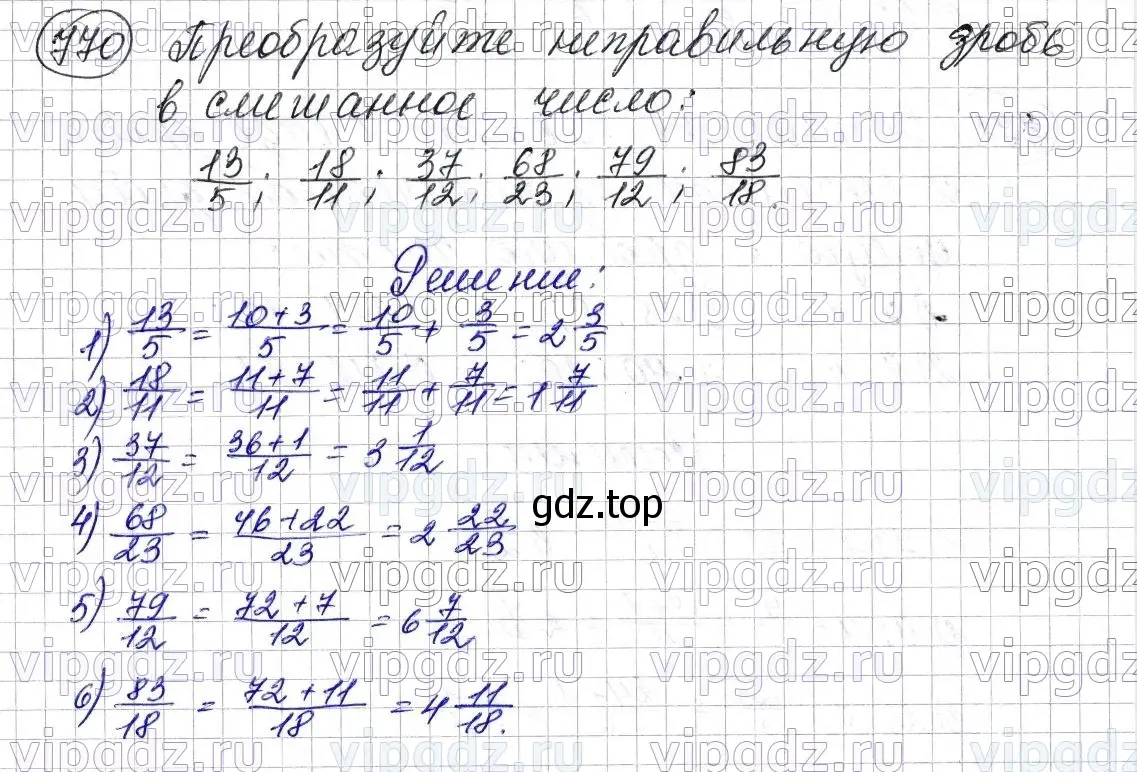 770 Преобразуйте неправильную дробь
в смешанное число:
13/5; 18/11; 37/12; 68/23; 79/12; 83/18.
Решение:
1) 13/5 = 10+3/5 = 10/5 + 3/5 = 2 3/5
2) 18/11 = 11+7/11 = 11/11 + 7/11 = 1 7/11
3) 37/12 = 36+1/12 = 3 1/12
4) 68/23 = 46+22/23 = 2 22/23
gdz.top
5) 79/12 = 72+7/12 = 6 7/12
6) 83/18 = 72+11/18 = 4 11/18.
vipgdz.ru